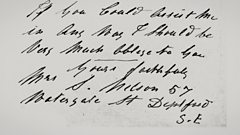 If you Could assist me
in any way I should be
Very Much oblige to you
Yours faithfully
Mrs S. Nelson 57
Watergate St Deptford
S.E